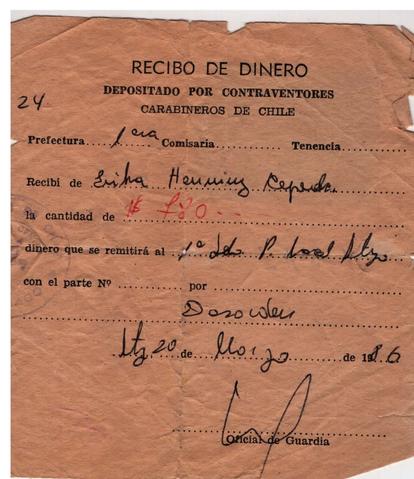 RECIBO DE DINERO
DEPOSITADO POR CONTRAVENTORES
CARABINEROS DE CHILE
24
Prefectura 1era Comisaría Tenencia
Recibi de Erika Henning Cepeda
la cantidad de $ 780.--
dinero que se remitirá al 1º P. Local Stgo
con el parte Nº por
Desorden
Stg. 20 de Marzo de 1986
Oficial de Guardia